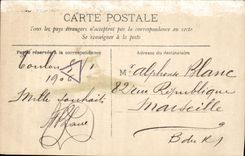 CARTE POSTALE
Tous les pays étrangers n'acceptent pas la correspondance au recto.
Se renseigner à la poste
Partie réservée à la correspondance
Adresse du destinataire
Toulon 1
190
Mille souhaits
Mr Alphonse Blanc
82 rue République
Marseille
B du R